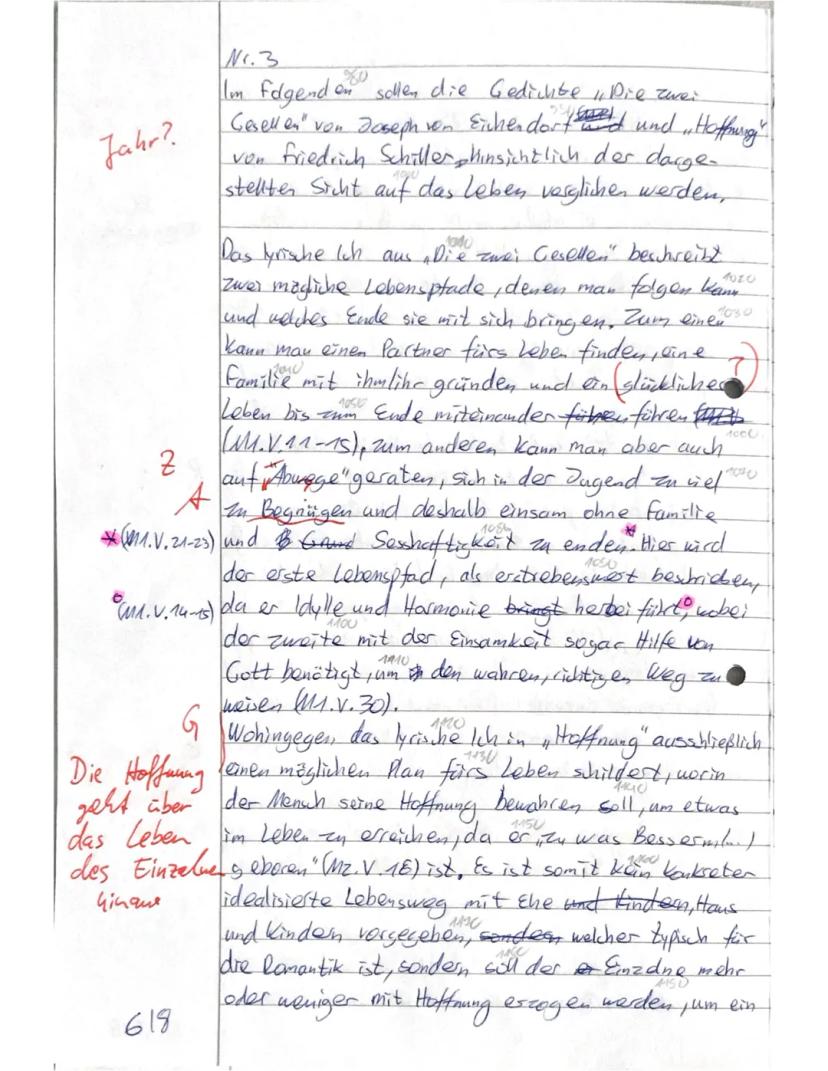 Nr. 3
980
Im Folgenden sollen die Gedichte „Die zwei
Gesellen" von Joseph von Eichendorf und und „Hoffnung"
990
Jahr?
von Friedrich Schiller hinsichtlich der darge-
1000
stellten Sicht auf das Leben verglichen werden.
1010
Das lyrische Ich aus „Die zwei Gesellen" beschreibt
zwei mögliche Lebenspfade, denen man folgen kann
1020
und welches Ende sie mit sich bringen. Zum einen
1030
kann man einen Partner fürs Leben finden, eine
?
1040
Familie mit ihm/ihr gründen und ein (glückliches)
1050
Leben bis zum Ende miteinander führen führen
1060
(M1.V.11-15), zum anderen kann man aber auch
Z
auf "Abwege" geraten, sich in der Jugend zu viel
1070
A
zu Begnügen und deshalb einsam ohne Familie
* (M1.V.21-23) und Grund Sesshaftigkeit zu enden.* Hier wird
1080
1090
der erste Lebenspfad, als erstrebenswert beschrieben,
° (M1.V.14-15) da er Idylle und Harmonie bringt herbei führt,° wobei
1100
der zweite mit der Einsamkeit sogar Hilfe von
1110
Gott benötigt, um den wahren, richtigen Weg zu
weisen (M1.V.30).
G
1120
Wohingegen das lyrische Ich in „Hoffnung" ausschließlich
1130
einen möglichen Plan fürs Leben schildert, worin
1140
der Mensch seine Hoffnung bewahren soll, um etwas
1150
im Leben zu erreichen, da er „zu was Besserm(...)
1160
geboren" (M2.V.16) ist. Es ist somit kein konkreter
Die Hoffnung
geht über
das Leben
des Einzelnen
hinaus
idealisierte Lebensweg mit Ehe und Kindern, Haus
und Kindern vorgegeben, sondern welcher typisch für
die Romantik ist, sondern soll der Einzelne mehr
oder weniger mit Hoffnung erzogen werden, um ein
6/8